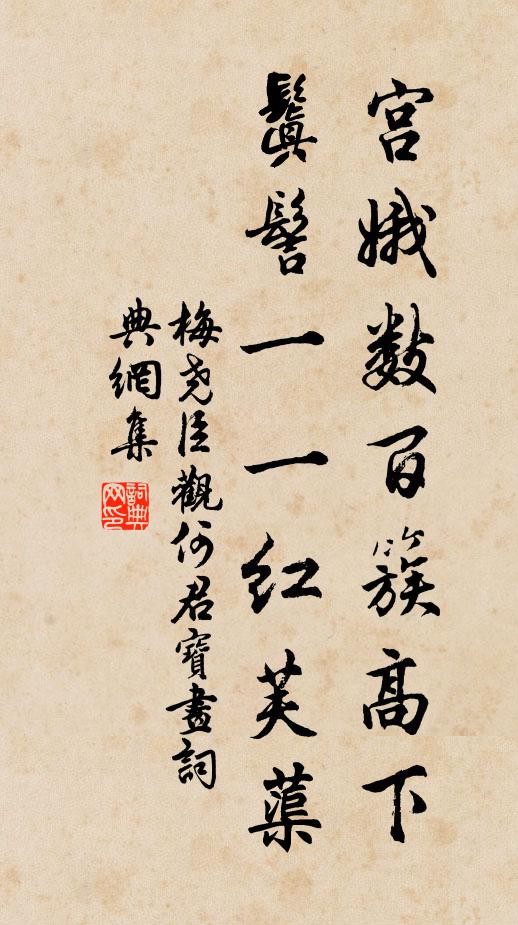 宫娥数百簇高下
鬒髻一一红芙蕖
梅尧臣觀何君寶畫詞
典網集
詞典
网印